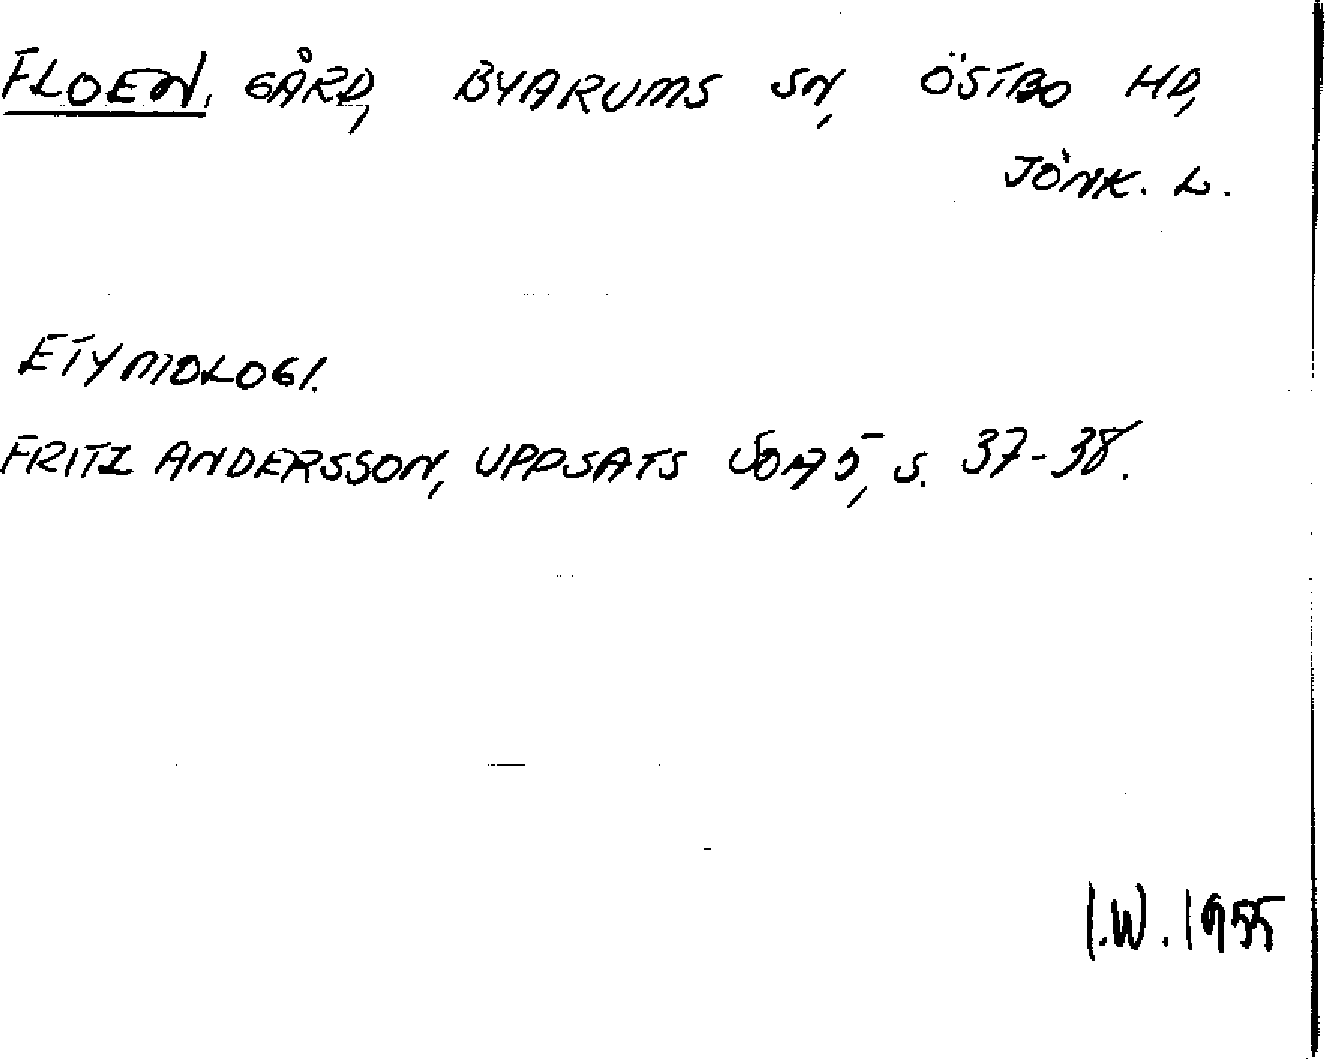 FLOEN, GÅRD, BYARUMS SN, ÖSTBO HD,
JÖNK. L.
ETYMOLOGI.
FRITZ ANDERSSON, UPPSATS S. 37-38.
I.W. 1955